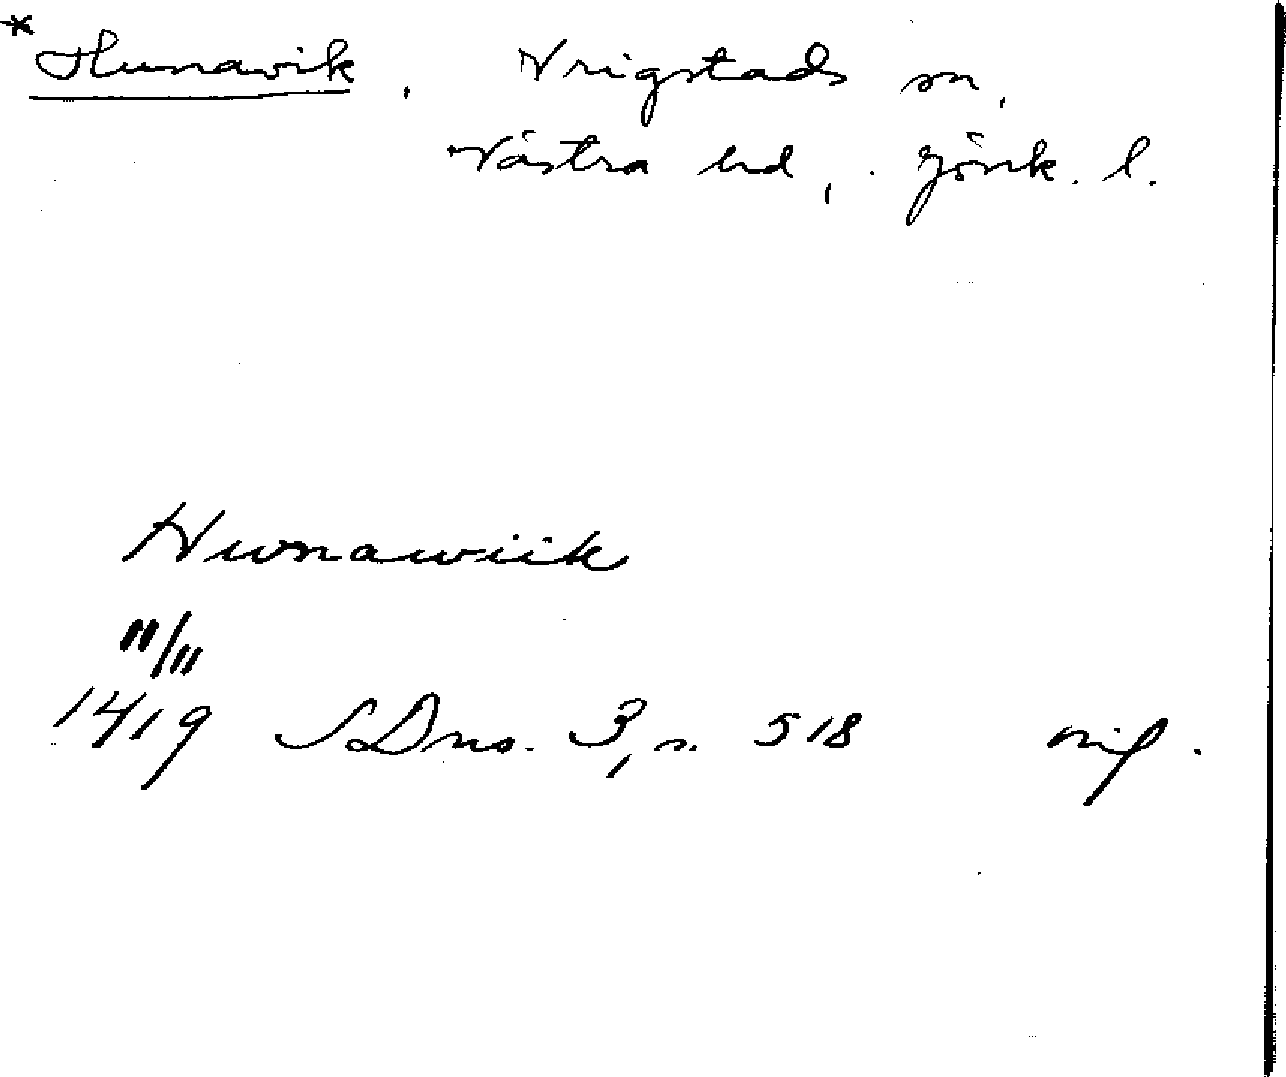 * Hunavik, Vrigstads sn,
Västra hd, Jönk. l.
Hwnawiik
11/11
1419 SDns. 3, s. 518 orig.